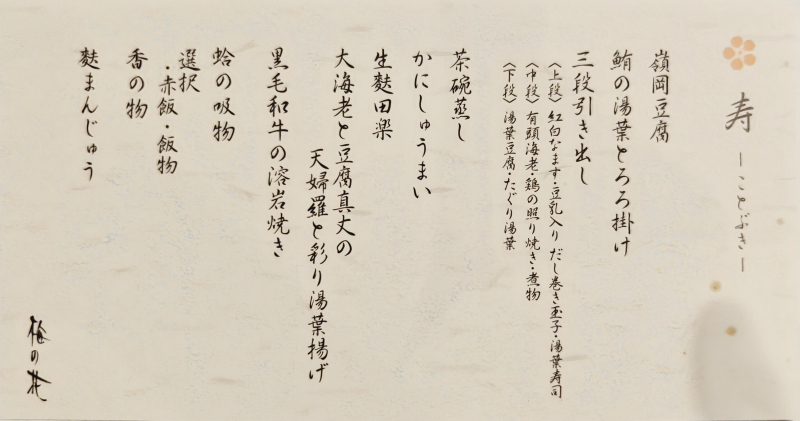 寿
ーことぶきー
嶺岡豆腐
鮪の湯葉とろろ掛け
三段引き出し
〈上段〉紅白なます・豆乳入り だし巻き玉子・湯葉寿司
〈中段〉有頭海老・鶏の照り焼き・煮物
〈下段〉湯葉豆腐・たぐり湯葉
茶碗蒸し
かにしゅうまい
生麩田楽
大海老と豆腐真丈の
天婦羅と彩り湯葉揚げ
黒毛和牛の溶岩焼き
蛤の吸物
選択
・赤飯・飯物
香の物
麩まんじゅう
梅の花